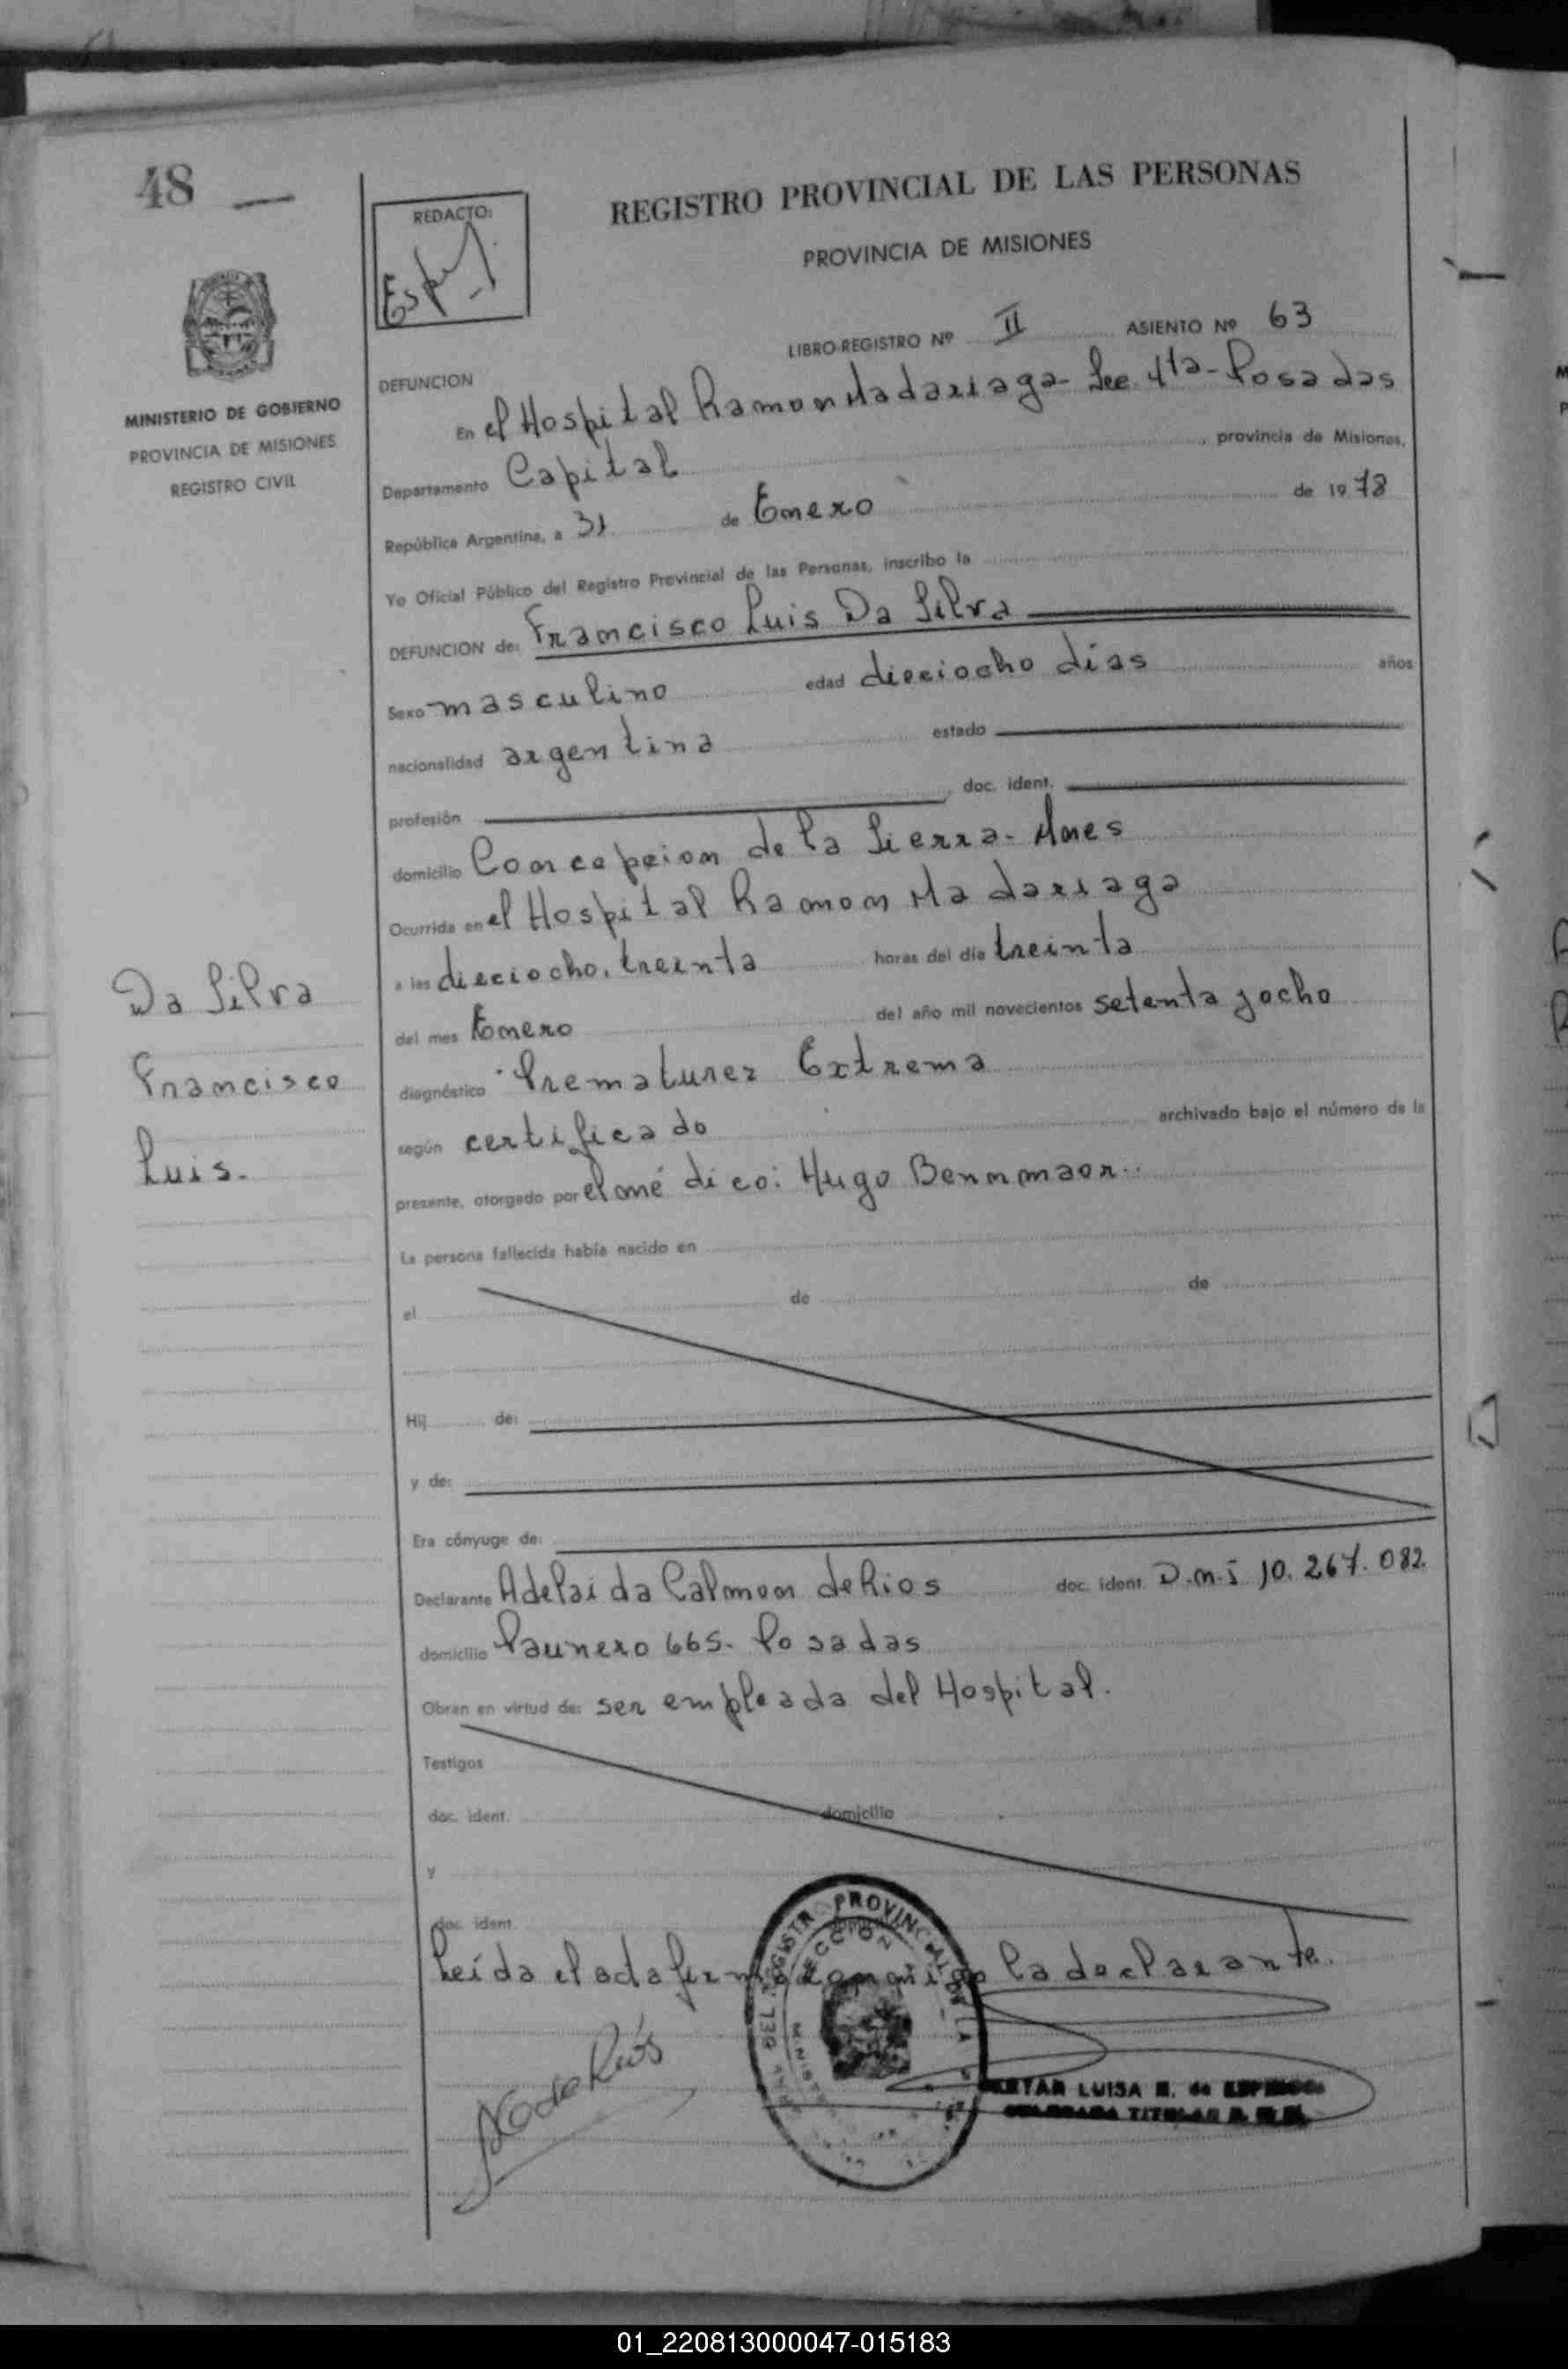 48 —
REDACTO:
REGISTRO PROVINCIAL DE LAS PERSONAS
PROVINCIA DE MISIONES
LIBRO-REGISTRO Nº II ASIENTO Nº 63
MINISTERIO DE GOBIERNO
PROVINCIA DE MISIONES
REGISTRO CIVIL
DEFUNCION
En el Hospital Ramon Madariaga - Sec. 4ta - Posadas
Departamento Capital, provincia de Misiones,
República Argentina, a 31 de Enero de 1978
Yo Oficial Público del Registro Provincial de las Personas, inscribo la
DEFUNCION de: Francisco Luis Da Silva
Sexo masculino edad dieciocho días años
nacionalidad argentina estado
profesión , doc. ident.
domicilio Concepcion de la Sierra - Mnes
Ocurrida en el Hospital Ramon Madariaga
a las dieciocho, treinta horas del día treinta
del mes Enero del año mil novecientos setenta y ocho
diagnóstico Prematurez Extrema
según certificado archivado bajo el número de la
presente, otorgado por el médico: Hugo Bennmaor.
Da Silva
Francisco
Luis.
La persona fallecida había nacido en
el de de
Hij de:
y de:
Era cónyuge de:
Declarante Adelaida Calmon de Rios doc. ident. D.n.i 10.267.082.
domicilio Paunero 665. Posadas
Obran en virtud de: ser empleada del Hospital.
Testigos
doc. ident. domicilio
y
doc. ident.
Leída el acta firma conmigo la declarante.
DEL REGISTRO PROVINCIAL DE LA
LUISA
TITULAR
01_220813000047-015183